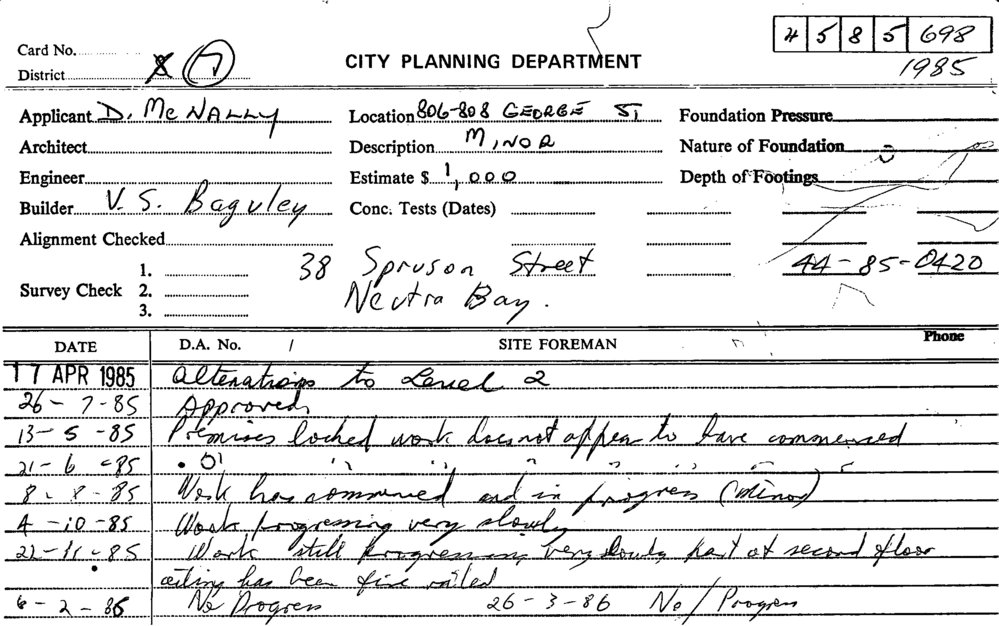 4 5 8 5 698
1985
Card No.
District 7
CITY PLANNING DEPARTMENT
Applicant D. McNALLY
Location 806-808 GEORGE ST
Foundation Pressure
Architect
Description MINOR
Nature of Foundation
Engineer
Estimate $ 1,000
Depth of Footings
Builder V. S. Baguley
Conc. Tests (Dates)
Alignment Checked
38 Spruson Street
44-85-0420
Survey Check 1.
2.
3.
Neutra Bay.
DATE D.A. No. / SITE FOREMAN Phone
17 APR 1985 Alterations to Level 2
26-7-85 Approved
13-5-85 Premises locked work does not appear to have commenced
21-6-85 " " " " " " "
8-8-85 Work has commenced and in progress (Minor)
4-10-85 Work progressing very slowly
22-11-85 Work still progressing very slowly part of second floor
ceiling has been fire rated
6-2-86 No Progress 26-3-86 No Progress